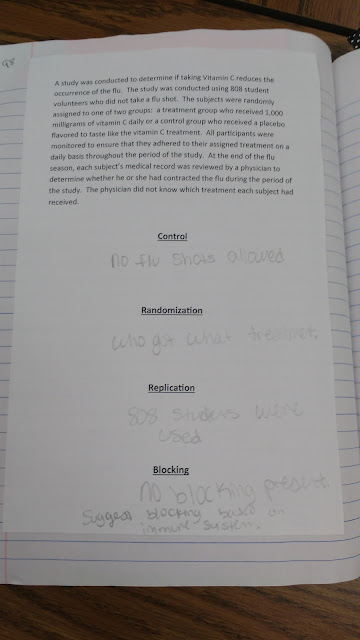 A study was conducted to determine if taking Vitamin C reduces the
occurrence of the flu. The study was conducted using 808 student
volunteers who did not take a flu shot. The subjects were randomly
assigned to one of two groups: a treatment group who received 1,000
milligrams of vitamin C daily or a control group who received a placebo
flavored to taste like the vitamin C treatment. All participants were
monitored to ensure that they adhered to their assigned treatment on a
daily basis throughout the period of the study. At the end of the flu
season, each subject's medical record was reviewed by a physician to
determine whether he or she had contracted the flu during the period of
the study. The physician did not know which treatment each subject had
received.
Control
no flu shots allowed
Randomization
who got what treatment.
Replication
808 students were
used
Blocking
no blocking present.
Suggest blocking based on
immune system.